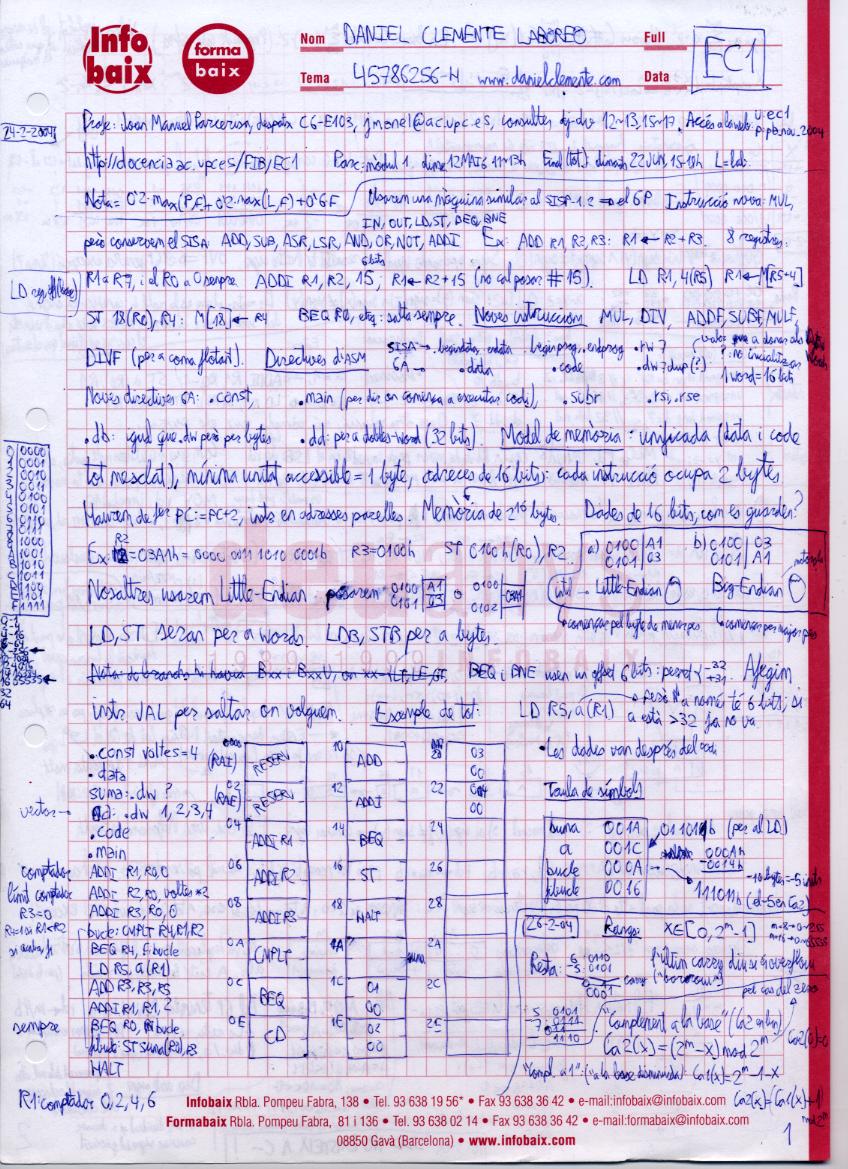 Info baix
forma baix
Nom DANIEL CLEMENTE LABOREO Full
Tema 45786256-H www.danielclemente.com Data
EC1
24-2-2004
Profe: Joan Manuel Parcerisa, despatx C6-E103, jmanel@ac.upc.es, consultes dj-dv 12-13, 15-17. Accés a la web: u: ec1
http://docencia.ac.upc.es/FIB/EC1 Parc: mòdul 1, 11-13h Final (tot): 22 JUN, 15-18h L=lab.
Nota= 0'2·max(P,F)+0'2·max(L,F)+0'6F Usarem una màquina similar al SISP-1,2 ⇒ el GP Instrucció nova: MUL,
IN, OUT, LD, ST, BEQ, BNE
però conservem el SISA: ADD, SUB, ASR, LSR, AND, OR, NOT, ADDI Ex: ADD R1, R2, R3: R1 ← R2+R3. 8 registres:
6 bits
R1 a R7, i el R0 a 0 sempre ADDI R1, R2, 15, R1 ← R2+15 (no cal posar #15). LD R1, 4(R5) R1 ← M[R5+4]
ST 18(R0), R4: M[18] ← R4 BEQ R0, etq: salta sempre. Noves instruccions MUL, DIV, ADDF, SUBF, MULF,
DIVF (per a coma flotant). Directives d'ASM SISA → .begindata .enddata .beginprog .endprog .rw 7
GA → .data .code .dw 7 dup(?)
? : no inicialitzar
1 word=16 bits
Noves directives GA: .const, .main (per dir on comença a executar codi), .subr .rsi, .rse
.db: igual que .dw però per bytes .dd: per a dobles-word (32 bits). Model de memòria: unificada (data i code
tot mesclat), mínima unitat accessible = 1 byte, adreces de 16 bits: cada instrucció ocupa 2 bytes
Haurem de fer PC:=PC+2, instr en adresses parelles. Memòria de 2^16 bytes. Dades de 16 bits, com es guarden?
Ex: R2=03A1h=0000 0011 1010 0001b R3=0100h ST 0100h(R0), R2. a) 0100 A1 b) 0100 03
0101 03 0101 A1
motorola
Nosaltres usarem Little-Endian posarem 0100 A1 o 0100 03A1 intel → Little-Endian Big-Endian
0101 03 0102
començar pel byte de menor pes començar per major pes
LD, ST seran per a words. LDB, STB per a bytes.
BEQ i BNE usen un offset 6 bits: -32 +31. Afegim
instr JAL per saltar on volguem. Exemple de tot: LD R5, a(R1) però "a" només té 6 bits; si
a està >32 ja no va.
.const voltes=4
.data
suma: .dw ?
vector → a: .dw 1, 2, 3, 4
.code
.main
comptador ADDI R1, R0, 0
límit comptador ADDI R2, R0, voltes*2
R3=0 ADDI R3, R0, 0
R4=1 si R1<R2 bucle: CMPLT R4, R1, R2
BEQ R4, fibucle
LD R5, a(R1)
ADD R3, R3, R5
ADDI R1, R1, 2
sempre BEQ R0, bucle
fibucle: ST suma(R0), R3
HALT
R1: comptador 0, 2, 4, 6
(RAI) RESERV
02 (RAE) RESERV
04 ADDI R1
06 ADDI R2
08 ADDI R3
0A CMPLT
0C BEQ
0E LD
10 ADD
12 ADDI
14 BEQ
16 ST
18 HALT
1A suma
1C 01 00
1E 02 00
20 03 00
22 04 00
24
26
28
2A
2C
2E
• Les dades van després del codi
Taula de símbols
suma 001A
a 001C 011010b (per al LD)
bucle 000A
fibucle 0016
-10 bytes=-5 instr
111011b
(el -5 en Ca2)
26-2-04 Rang: X∈[0, 2^m-1]
Resta: 6 0110
-5 0101
0001
l'últim carry diu si overflow
("borrow")
5 0101
-7 0111
1110
"Complement a la base" (Ca2 en bin)
Ca2(X)=(2^m-X) mod 2^m Ca2(0)=0
"Compl. a 1" ("a la base disminuïda): Ca1(x)=2^m-1-X
Ca2(x)=(Ca1(x)+1) mod 2^m
0 0000
1 0001
2 0010
3 0011
4 0100
5 0101
6 0110
7 0111
8 1000
9 1001
A 1010
B 1011
C 1100
D 1101
E 1110
F 1111
Infobaix Rbla. Pompeu Fabra, 138 • Tel. 93 638 19 56* • Fax 93 638 36 42 • e-mail:infobaix@infobaix.com
Formabaix Rbla. Pompeu Fabra, 81 i 136 • Tel. 93 638 02 14 • Fax 93 638 36 42 • e-mail:formabaix@infobaix.com
08850 Gavà (Barcelona) • www.infobaix.com
1